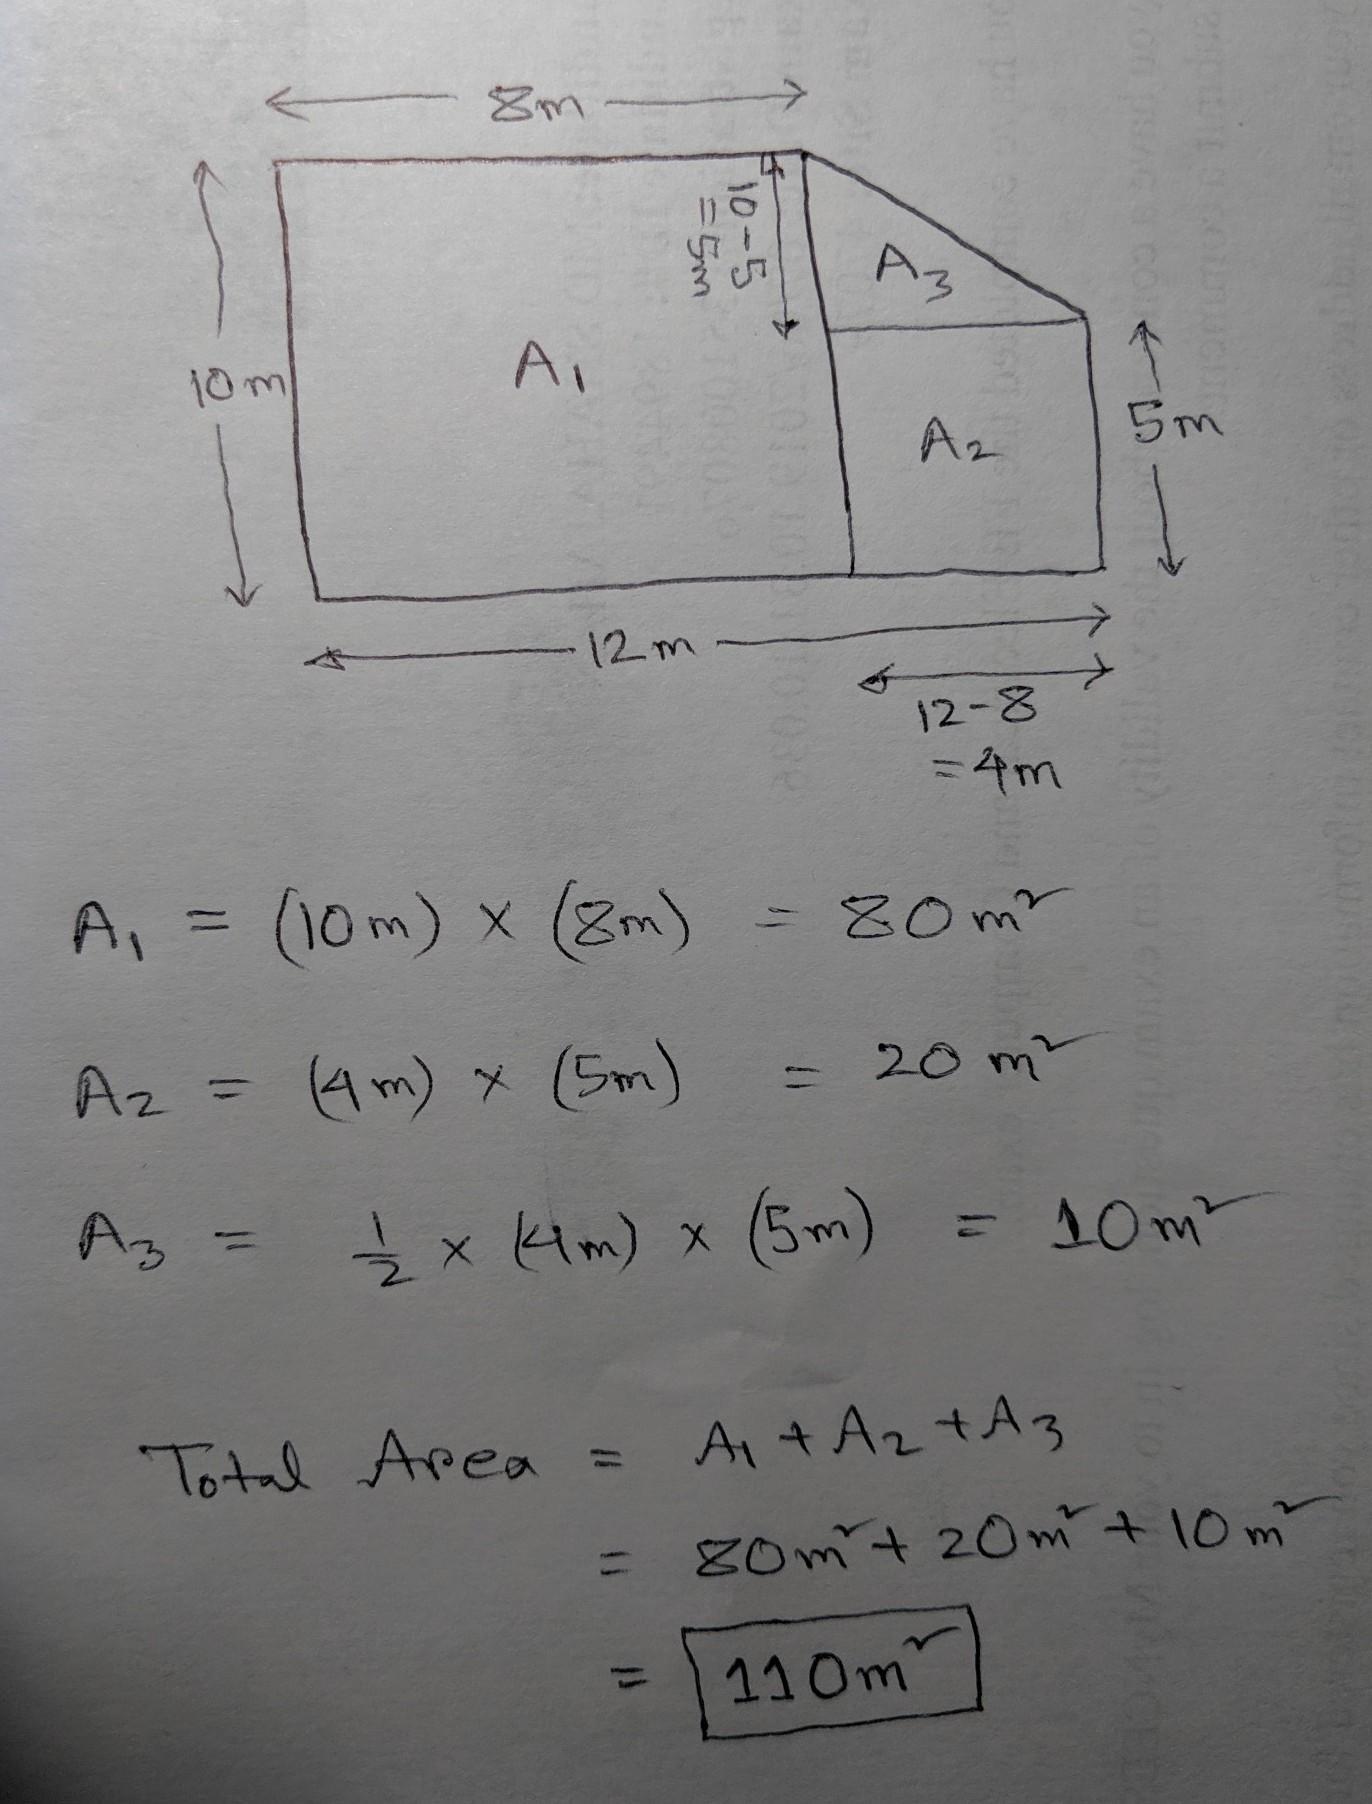 8m
10-5
= 5m
A3
10m
A1
5m
A2
12m
12-8
= 4m
A1 = (10m) × (8m) = 80m²
A2 = (4m) × (5m) = 20 m²
A3 = 1/2 × (4m) × (5m) = 10m²
Total Area = A1 + A2 + A3
= 80m² + 20m² + 10m²
= 110m²